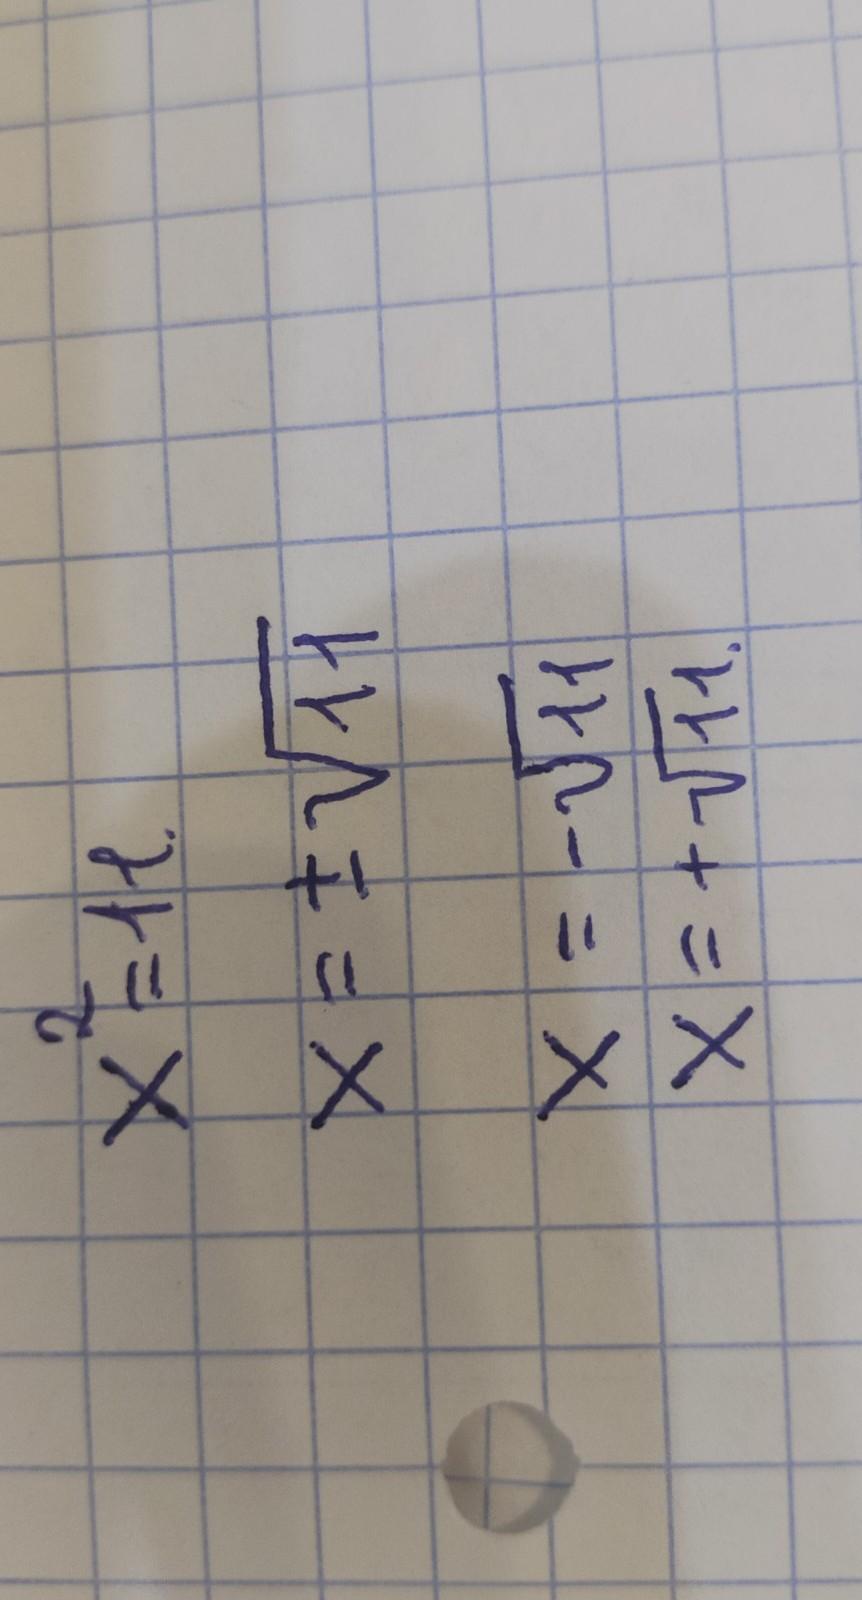 x²=11.
x = ±√11
x = -√11
x = +√11.